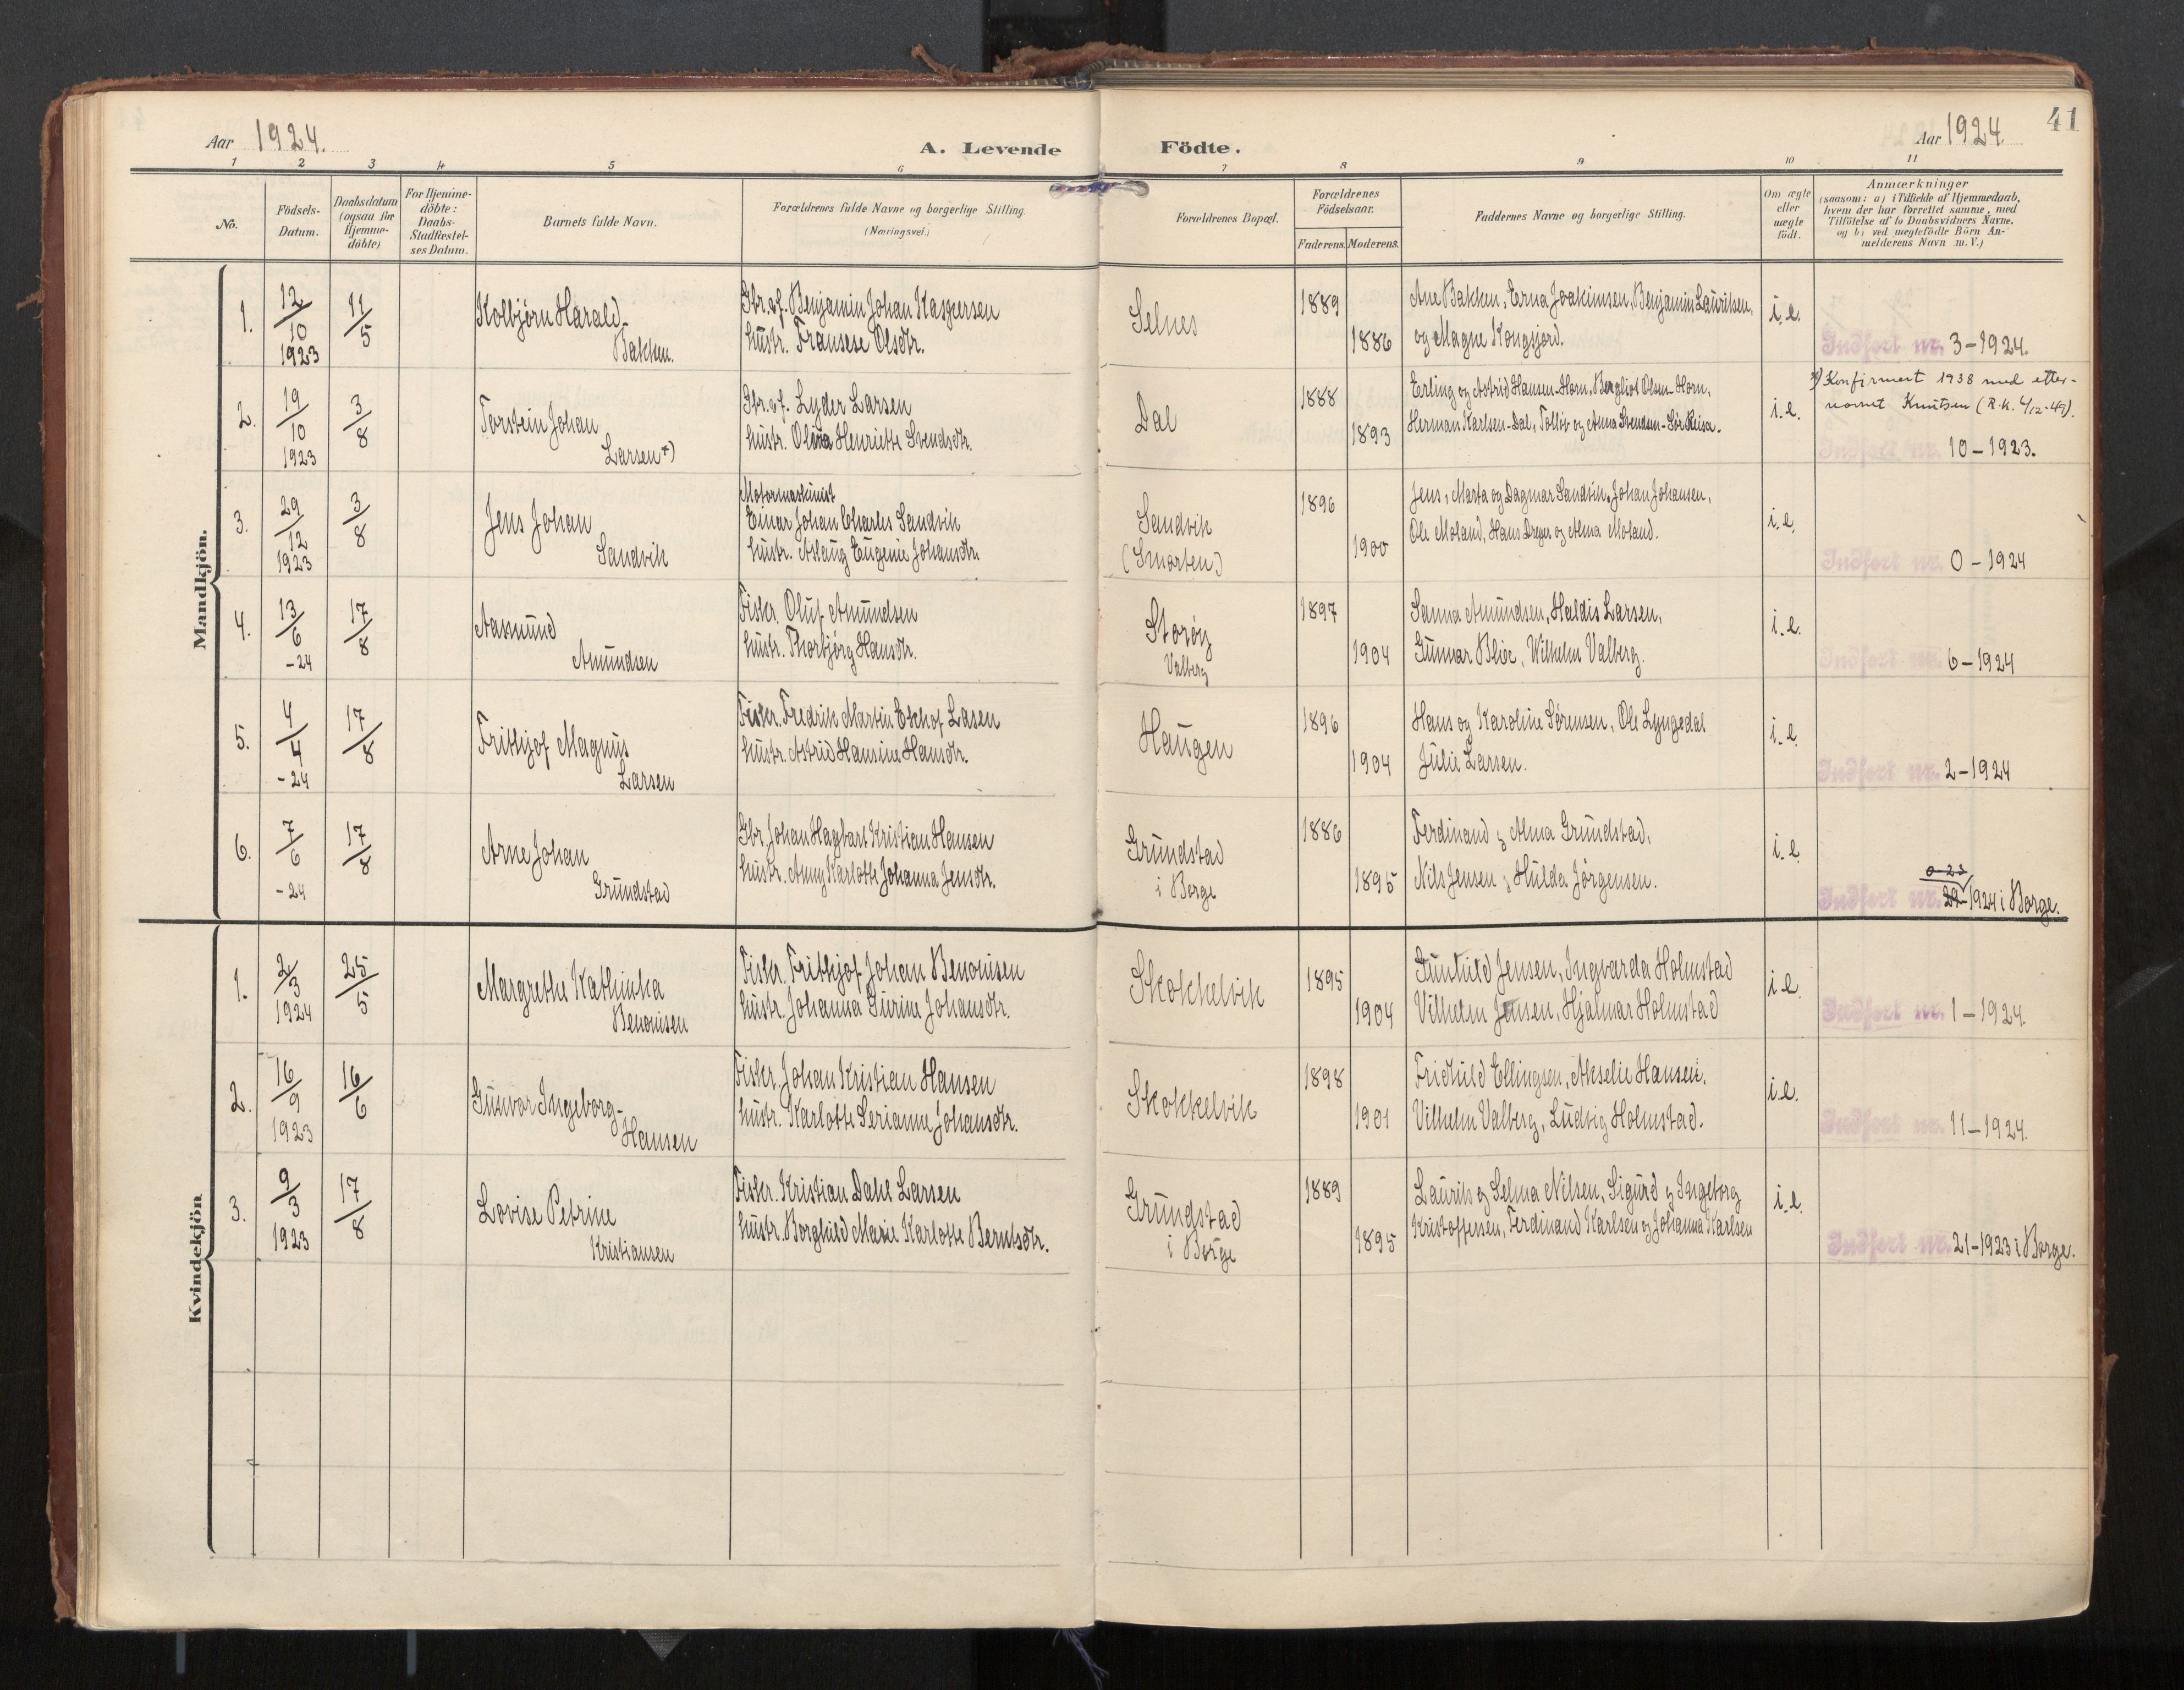 41
Aar 1924.
A. Levende Födte.
Aar 1924.
1 2 3 4 5 6 7 8 9 10 11
No.
Födsels-
Datum.
Daabsdatum
(ogsaa for
Hjemme-
döbte)
For Hjemme-
döbte:
Daabs-
Stadfæstel-
ses Datum.
Barnets fulde Navn.
Forældrenes fulde Navne og borgerlige Stilling.
(Næringsvei.)
Forældrenes Bopæl.
Forældrenes
Födselsaar.
Faderens. Moderens.
Faddernes Navne og borgerlige Stilling.
Om ægte
eller
uægte
födt.
Anmærkninger
(saasom: a) i Tilfælde af Hjemmedaab,
hvem der har forrettet samme, med
Tilföielse af to Daabsvidners Navne.
og b) ved uægtefödte Börn An-
melderens Navn m. V.)
Mandkjön.
1.
12/10
1923
11/5
Kolbjørn Harald
Bakken.
Gbr. og f. Benjamin Johan Kaspersen
hustr. Fransese Olsdtr.
Selnes
1889
1886
Ane Bakken, Erna Joakimsen, Benjamin Lauritsen,
og Magne Kongsjord.
i.e.
Indført nr. 3-1924.
2.
19/10
1923
3/8
Torstein Johan
Larsen*)
Gbr. og f. Lyder Larsen
hustr. Olivia Henriette Svendsdtr.
Dal
1888
1893
Erling og Astrid Hansen-Horn, Bergliot Olsen-Horn,
Herman Karlsen-Dal, Tolliv og Anna Svendsen-Sør Reisa.
i.e.
*) Konfirmert 1938 med etter-
navnet Knutsen (R.k. 4/12-49).
Indført nr. 10-1923.
3.
29/12
1923
3/8
Jens Johan
Sandvik
Motormaskinist
Einar Johan Charles Sandvik
hustr. Aslaug Eugenie Johansdtr.
Sandvik
(Smorten)
1896
1900
Jens, Marta og Dagmar Sandvik, Johan Johansen,
Ole Moland, Hans Dreyer og Alma Moland.
i.e.
Indført nr. 0-1924
4.
13/6
-24
17/8
Aasmund
Amundsen
Fisker. Oluf Amundsen
hustr. Thorbjørg Hansdtr.
Storøy
Valberg
1897
1904
Sanna Amundsen, Haldis Larsen,
Gunnar Blix, Wilhelm Valberg.
i.e.
Indført nr. 6-1924
5.
4/4
-24
17/8
Frithjof Magnus
Larsen
Fisker. Fredrik Martin Ekhof Lasen
hustr. Astrid Hansine Hansdtr.
Haugen
1896
1904
Hans og Karoline Sørensen, Ole Lyngedal
Julie Larsen.
i.e.
Indført nr. 2-1924
6.
7/6
-24
17/8
Arne Johan
Grundstad
Gbr. Johan Hagbart Kristian Hansen
hustr. Anny Karlotte Johanna Jensdtr.
Grundstad
i Borge
1886
1895
Ferdinand og Alma Grundstad,
Nils Jensen og Hulda Jørgensen.
i.e.
0-23
Indført nr. 29-1924 i Borge.
Kvindekjön
1.
2/3
1924
25/5
Margrethe Kathinka
Benonisen
Fisker. Frithjof Johan Benonisen
hustr. Johanna Gurine Johansdtr.
Skokkelvik
1895
1904
Gunhild Jensen, Ingvarda Holmstad
Vilhelm Jensen, Hjalmar Holmstad
i.e.
Indført nr. 1-1924.
2.
16/9
1923
16/6
Gunvor Ingeborg
Hansen
Fisker. Johan Kristian Hansen
hustr. Karlotte Serianne Johansdtr.
Skokkelvik
1898
1901
Fridhild Ellingsen, Akselie Hansen,
Vilhelm Valberg, Ludvig Holmstad.
i.e.
Indført nr. 11-1924.
3.
9/3
1923
17/8
Lovise Petrine
Kristiansen
Fisker. Kristian Dahl Larsen
hustr. Borghild Marie Karlotte Berntsdtr.
Grundstad
i Borge
1889
1895
Laurits og Selma Nilsen, Sigurd og Ingeborg
Kristoffersen, Ferdinand Karlsen og Johanna Karlsen
i.e.
Indført nr. 21-1923 i Borge.